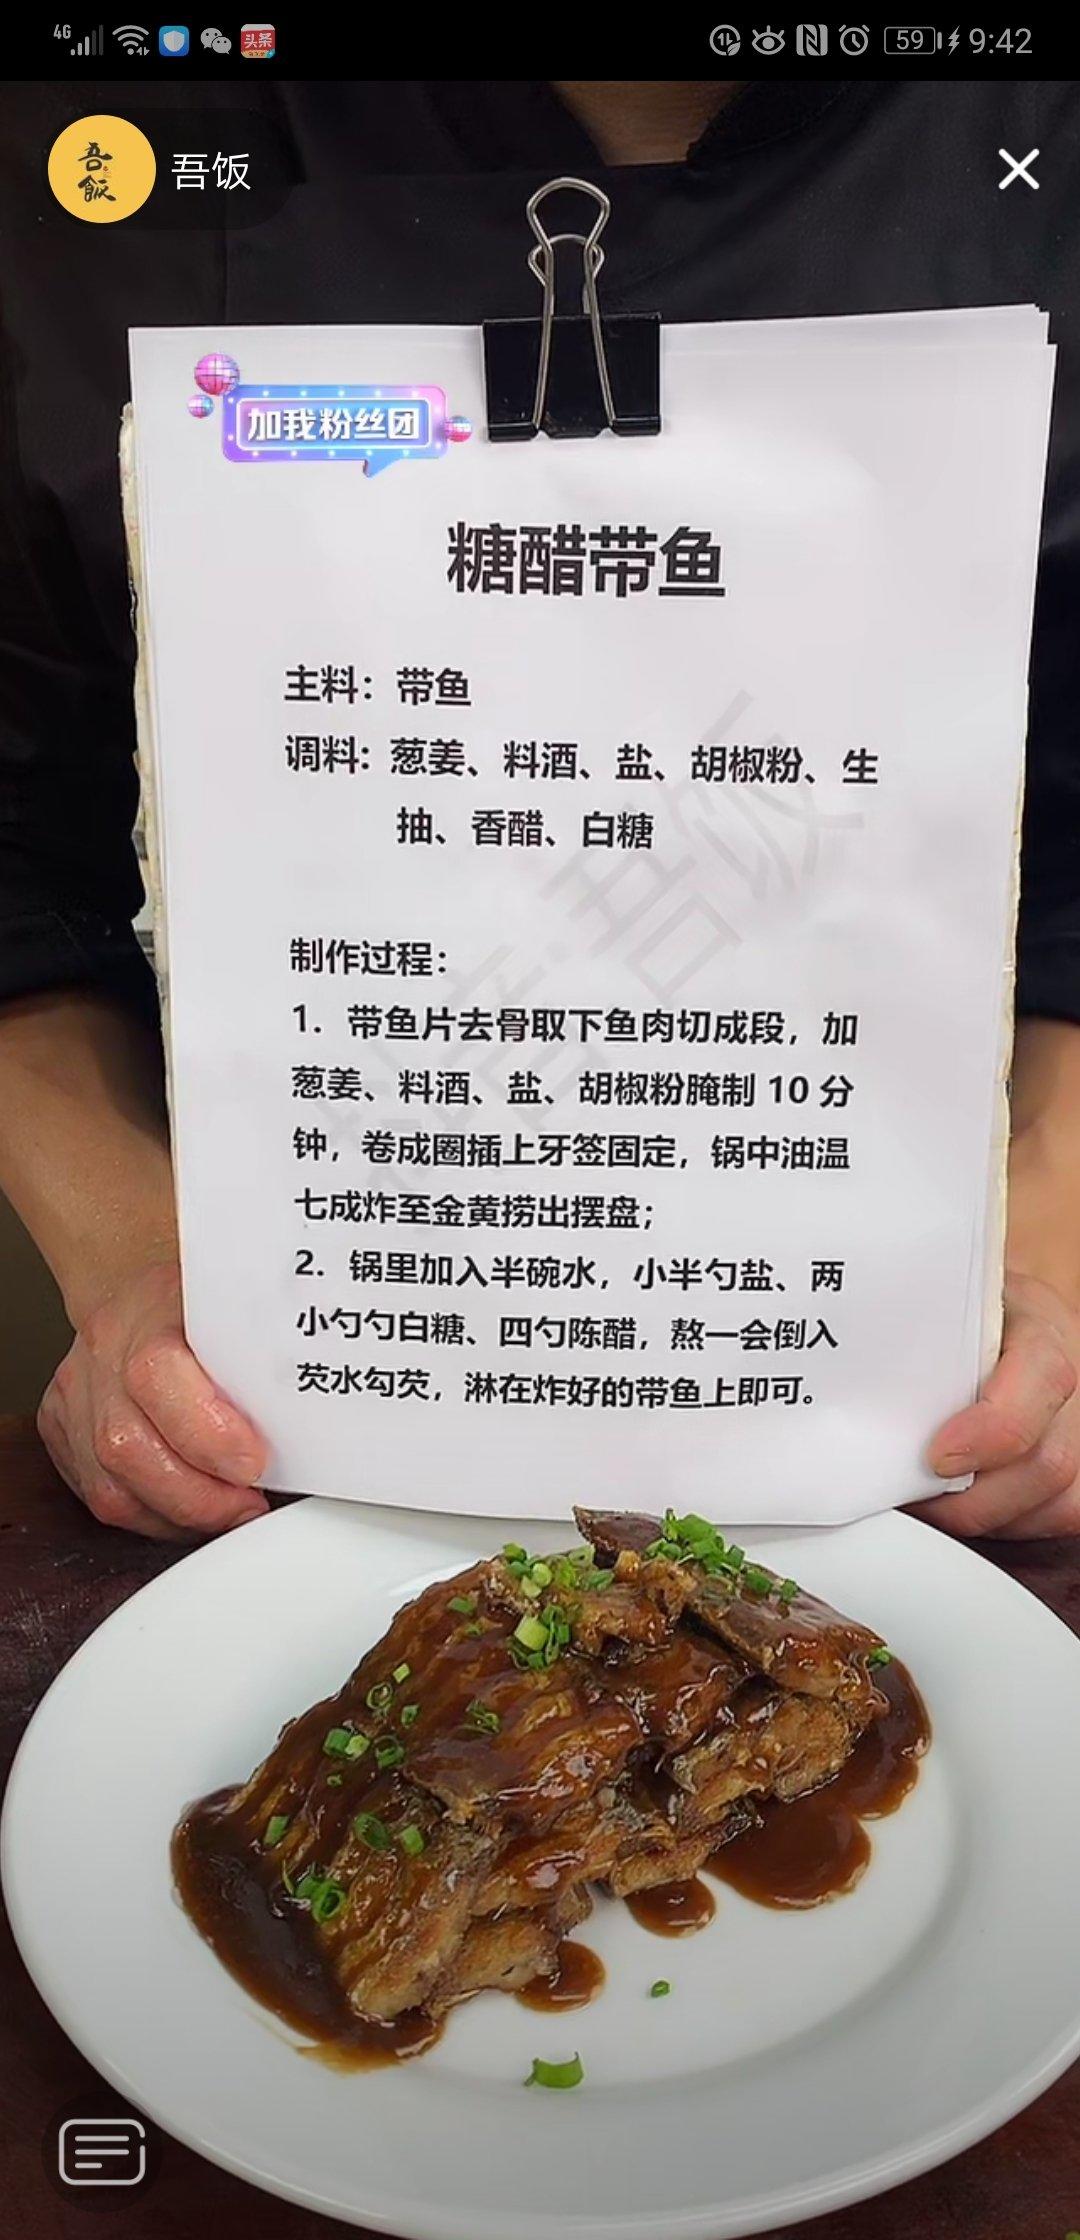 4G
头条
59
9:42
吾饭
吾饭
加我粉丝团
糖醋带鱼
主料：带鱼
调料：葱姜、料酒、盐、胡椒粉、生
抽、香醋、白糖
制作过程：
1. 带鱼片去骨取下鱼肉切成段，加
葱姜、料酒、盐、胡椒粉腌制 10 分
钟，卷成圈插上牙签固定，锅中油温
七成炸至金黄捞出摆盘；
2. 锅里加入半碗水，小半勺盐、两
小勺勺白糖、四勺陈醋，熬一会倒入
芡水勾芡，淋在炸好的带鱼上即可。
抖音:吾饭